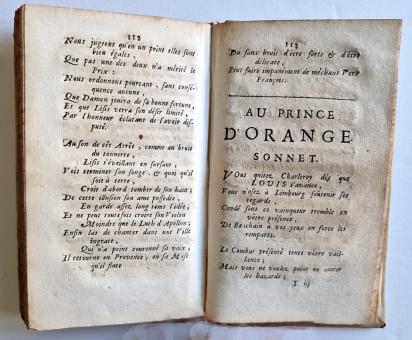 112
Nous jugeons qu'en un point elles sont
bien égales,
Que pas une des deux n'a mérité le
Prix:
Nous ordonnons pourtant, sans consé-
quence aucune,
Que Damon jouira de sa bonne fortune,
Et que Lisis verra son désir limité,
Par l'honneur éclatant de l'avoir dis-
puté.
Au son de cét Arrêt, comme au bruit
du tonnerre,
Lisis s'éveillant en sursaut,
Voit terminer son songe, & quoi qu'il
soit à terre,
Croit d'abord tomber de son haut;
De cette illusion son ame possedée,
En garde assez long-tems l'idée,
Et ne peut toutefois croire son Violon
Moindre que le Luth d'Apollon;
Enfin las de chanter dans une Ville
ingrate,
Qui n'a point couronné sa voix,
Il retourne en Provence, où sa Muse
qu'il flate
113
Du faux bruit d'être forte & d'être
délicate,
Peut faire impunément de méchant Vers
François.
AU PRINCE
D'ORANGE.
SONNET.
Vous quitez Charleroy dés que
LOUIS s'avance,
Vous n'osez à Limbourg soûtenir ses
regards,
Condé sous ce vainqueur tremble en
vôtre présence,
De Bouchain à vos yeux on force les
remparts.
Le Combat présenté tente vôtre vail-
lance;
Mais vous ne voulez point en courir
les hazards;
I iij